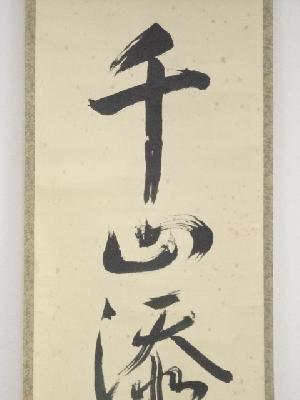 千山添